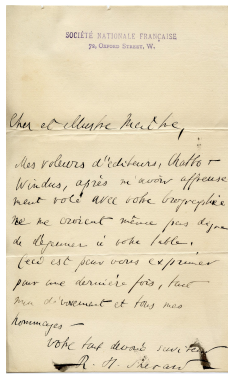 SOCIÉTÉ NATIONALE FRANÇAISE
Cher et illustre Maître,
Mes voleurs d'éditeurs, Chatto &
Windus, après m'avoir affreuse
ment volé avec votre biographie
ne me croient même pas digne
de déjeuner à votre table.
Ceci est pour vous exprimer
pour une dernière fois, tout
mon dévouement et tous mes
hommages –
Votre tout dévoué serviteur
R. H. Sherard